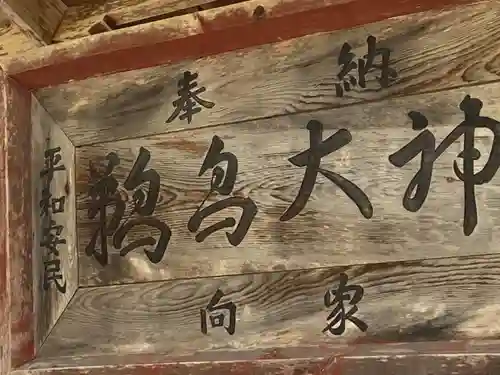 奉納
鵜鳥大神
向家
平和安民